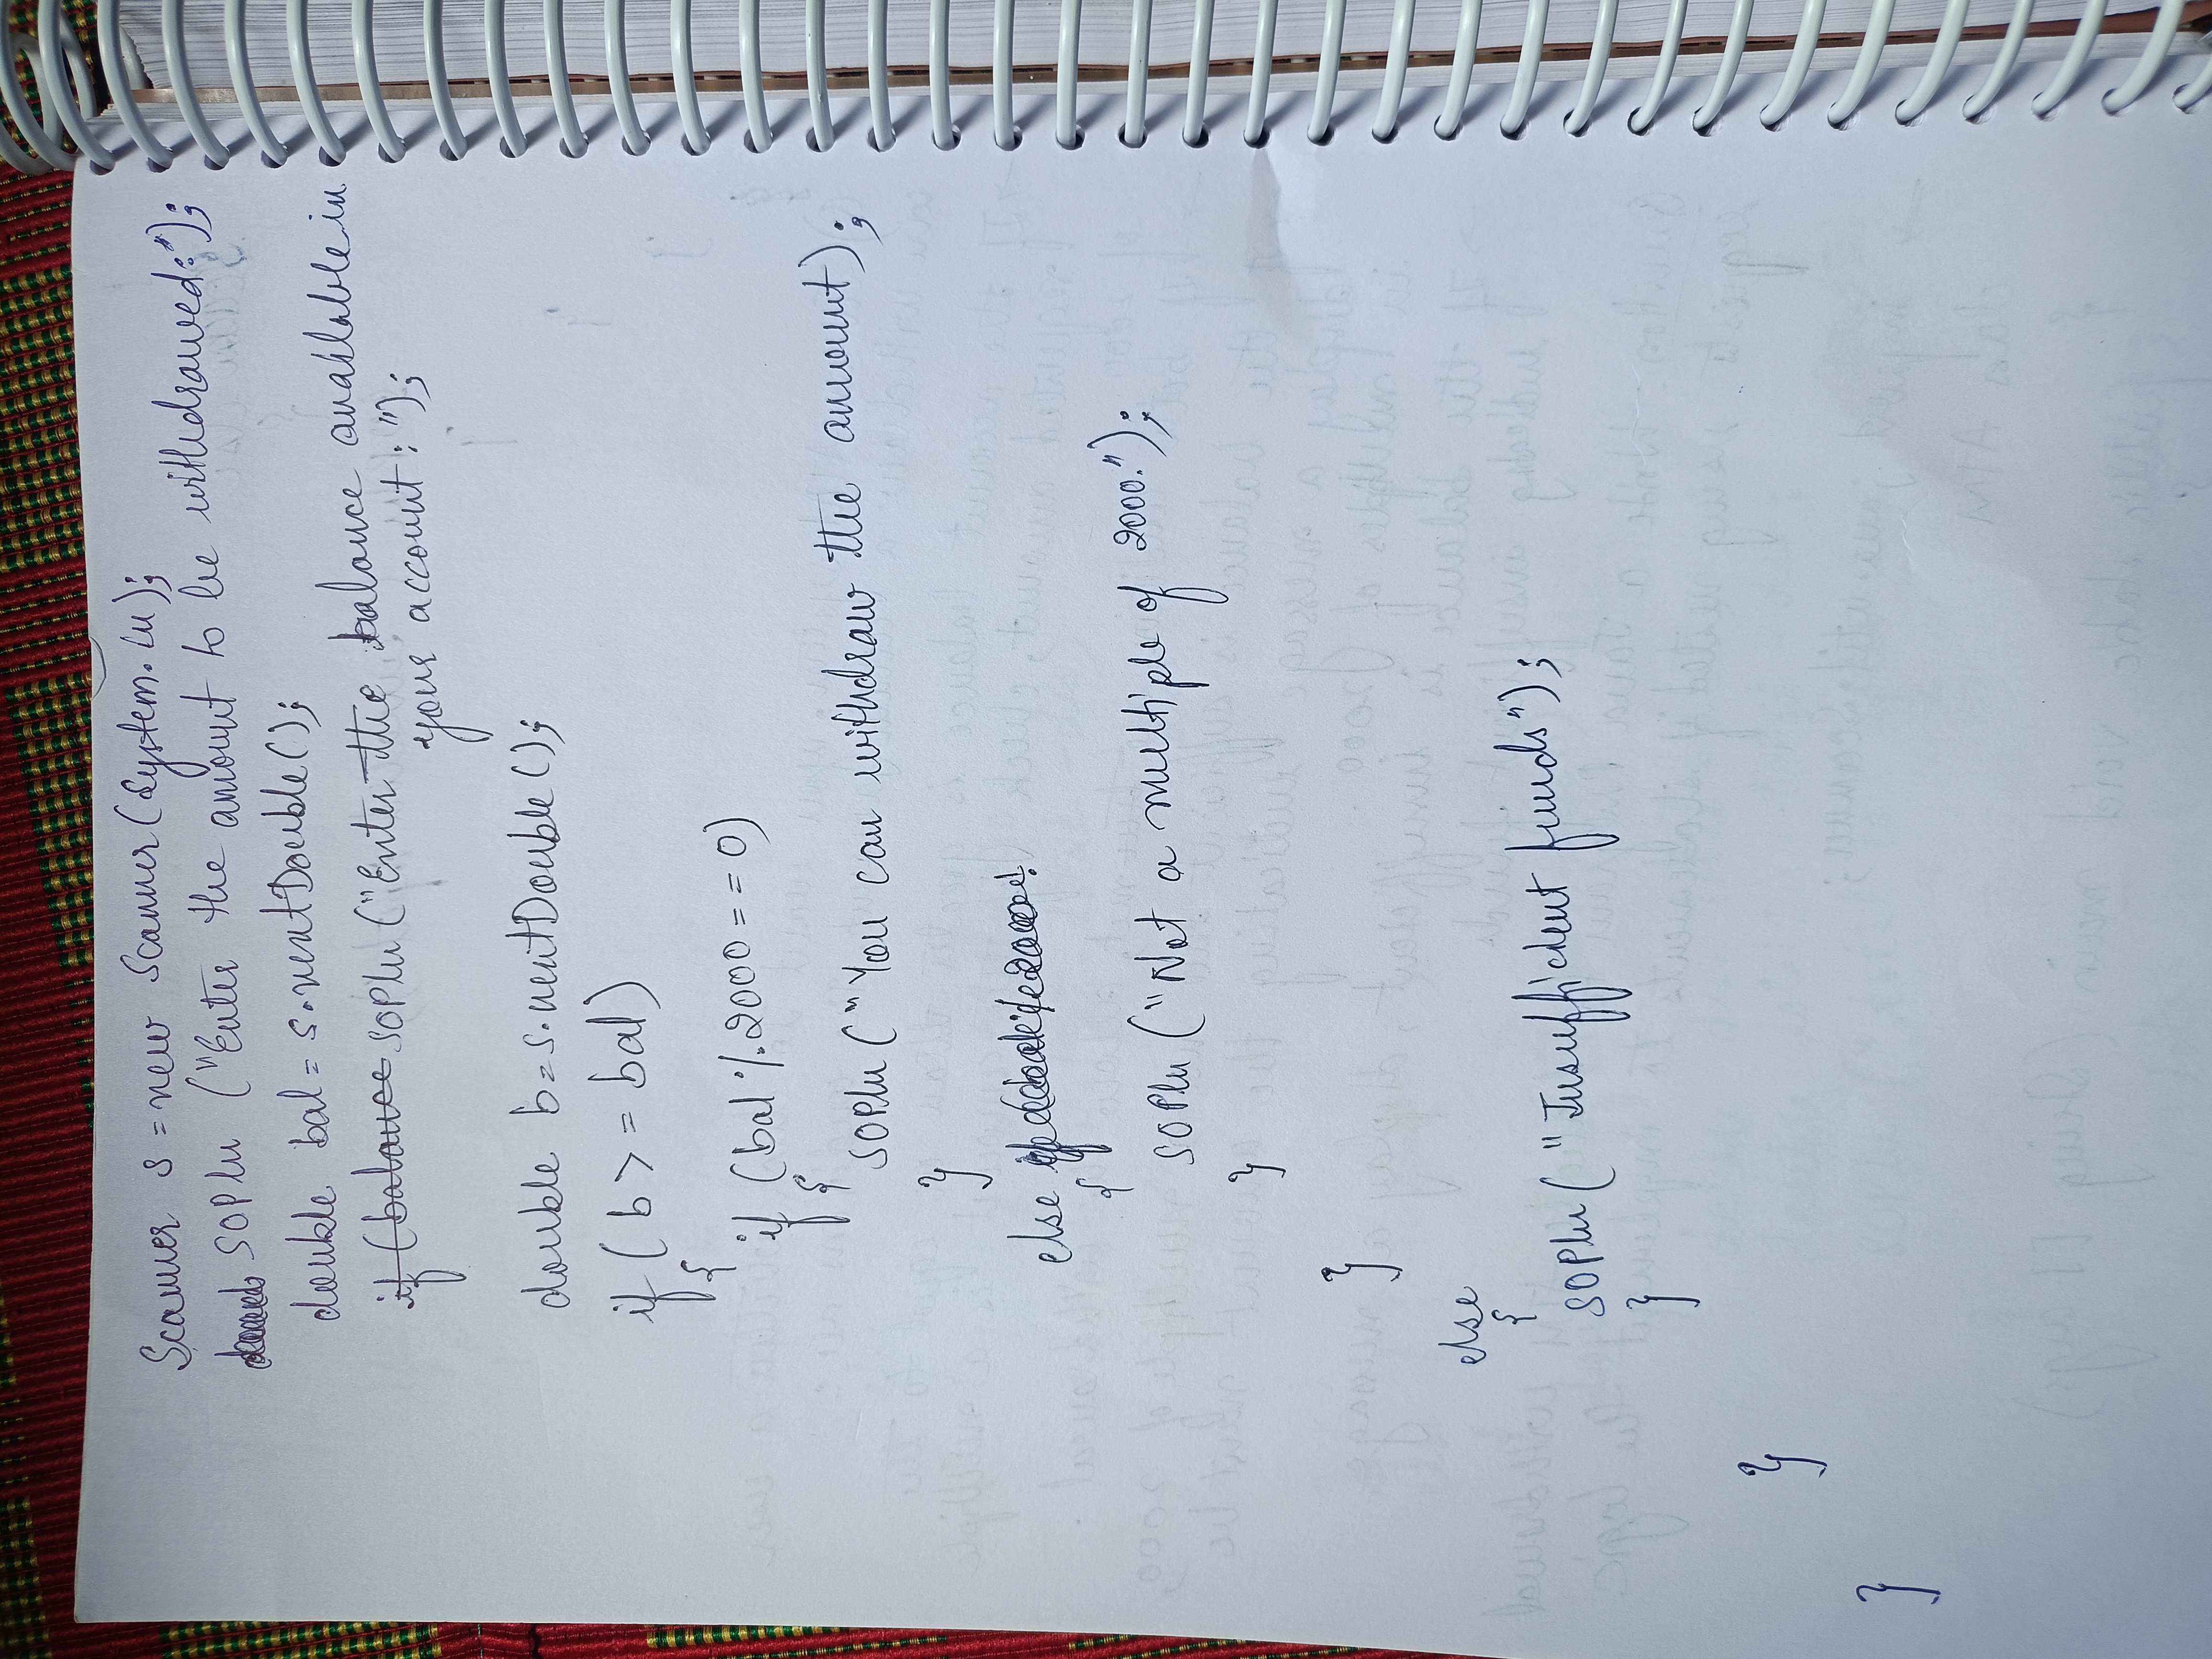 Scanner s = new Scanner(System.in);
SOPln ("Enter the amount to be withdrawed:");
double bal = s.nextDouble();
if (balance SOPln ("Enter the balance available in
your account:");
double b = s.nextDouble();
if (b >= bal)
{
if (bal % 2000 == 0)
{
SOPln ("You can withdraw the amount);
}
else
{
SOPln ("Not a multiple of 2000.");
}
}
else
{
SOPln ("Insufficient funds");
}
}
}